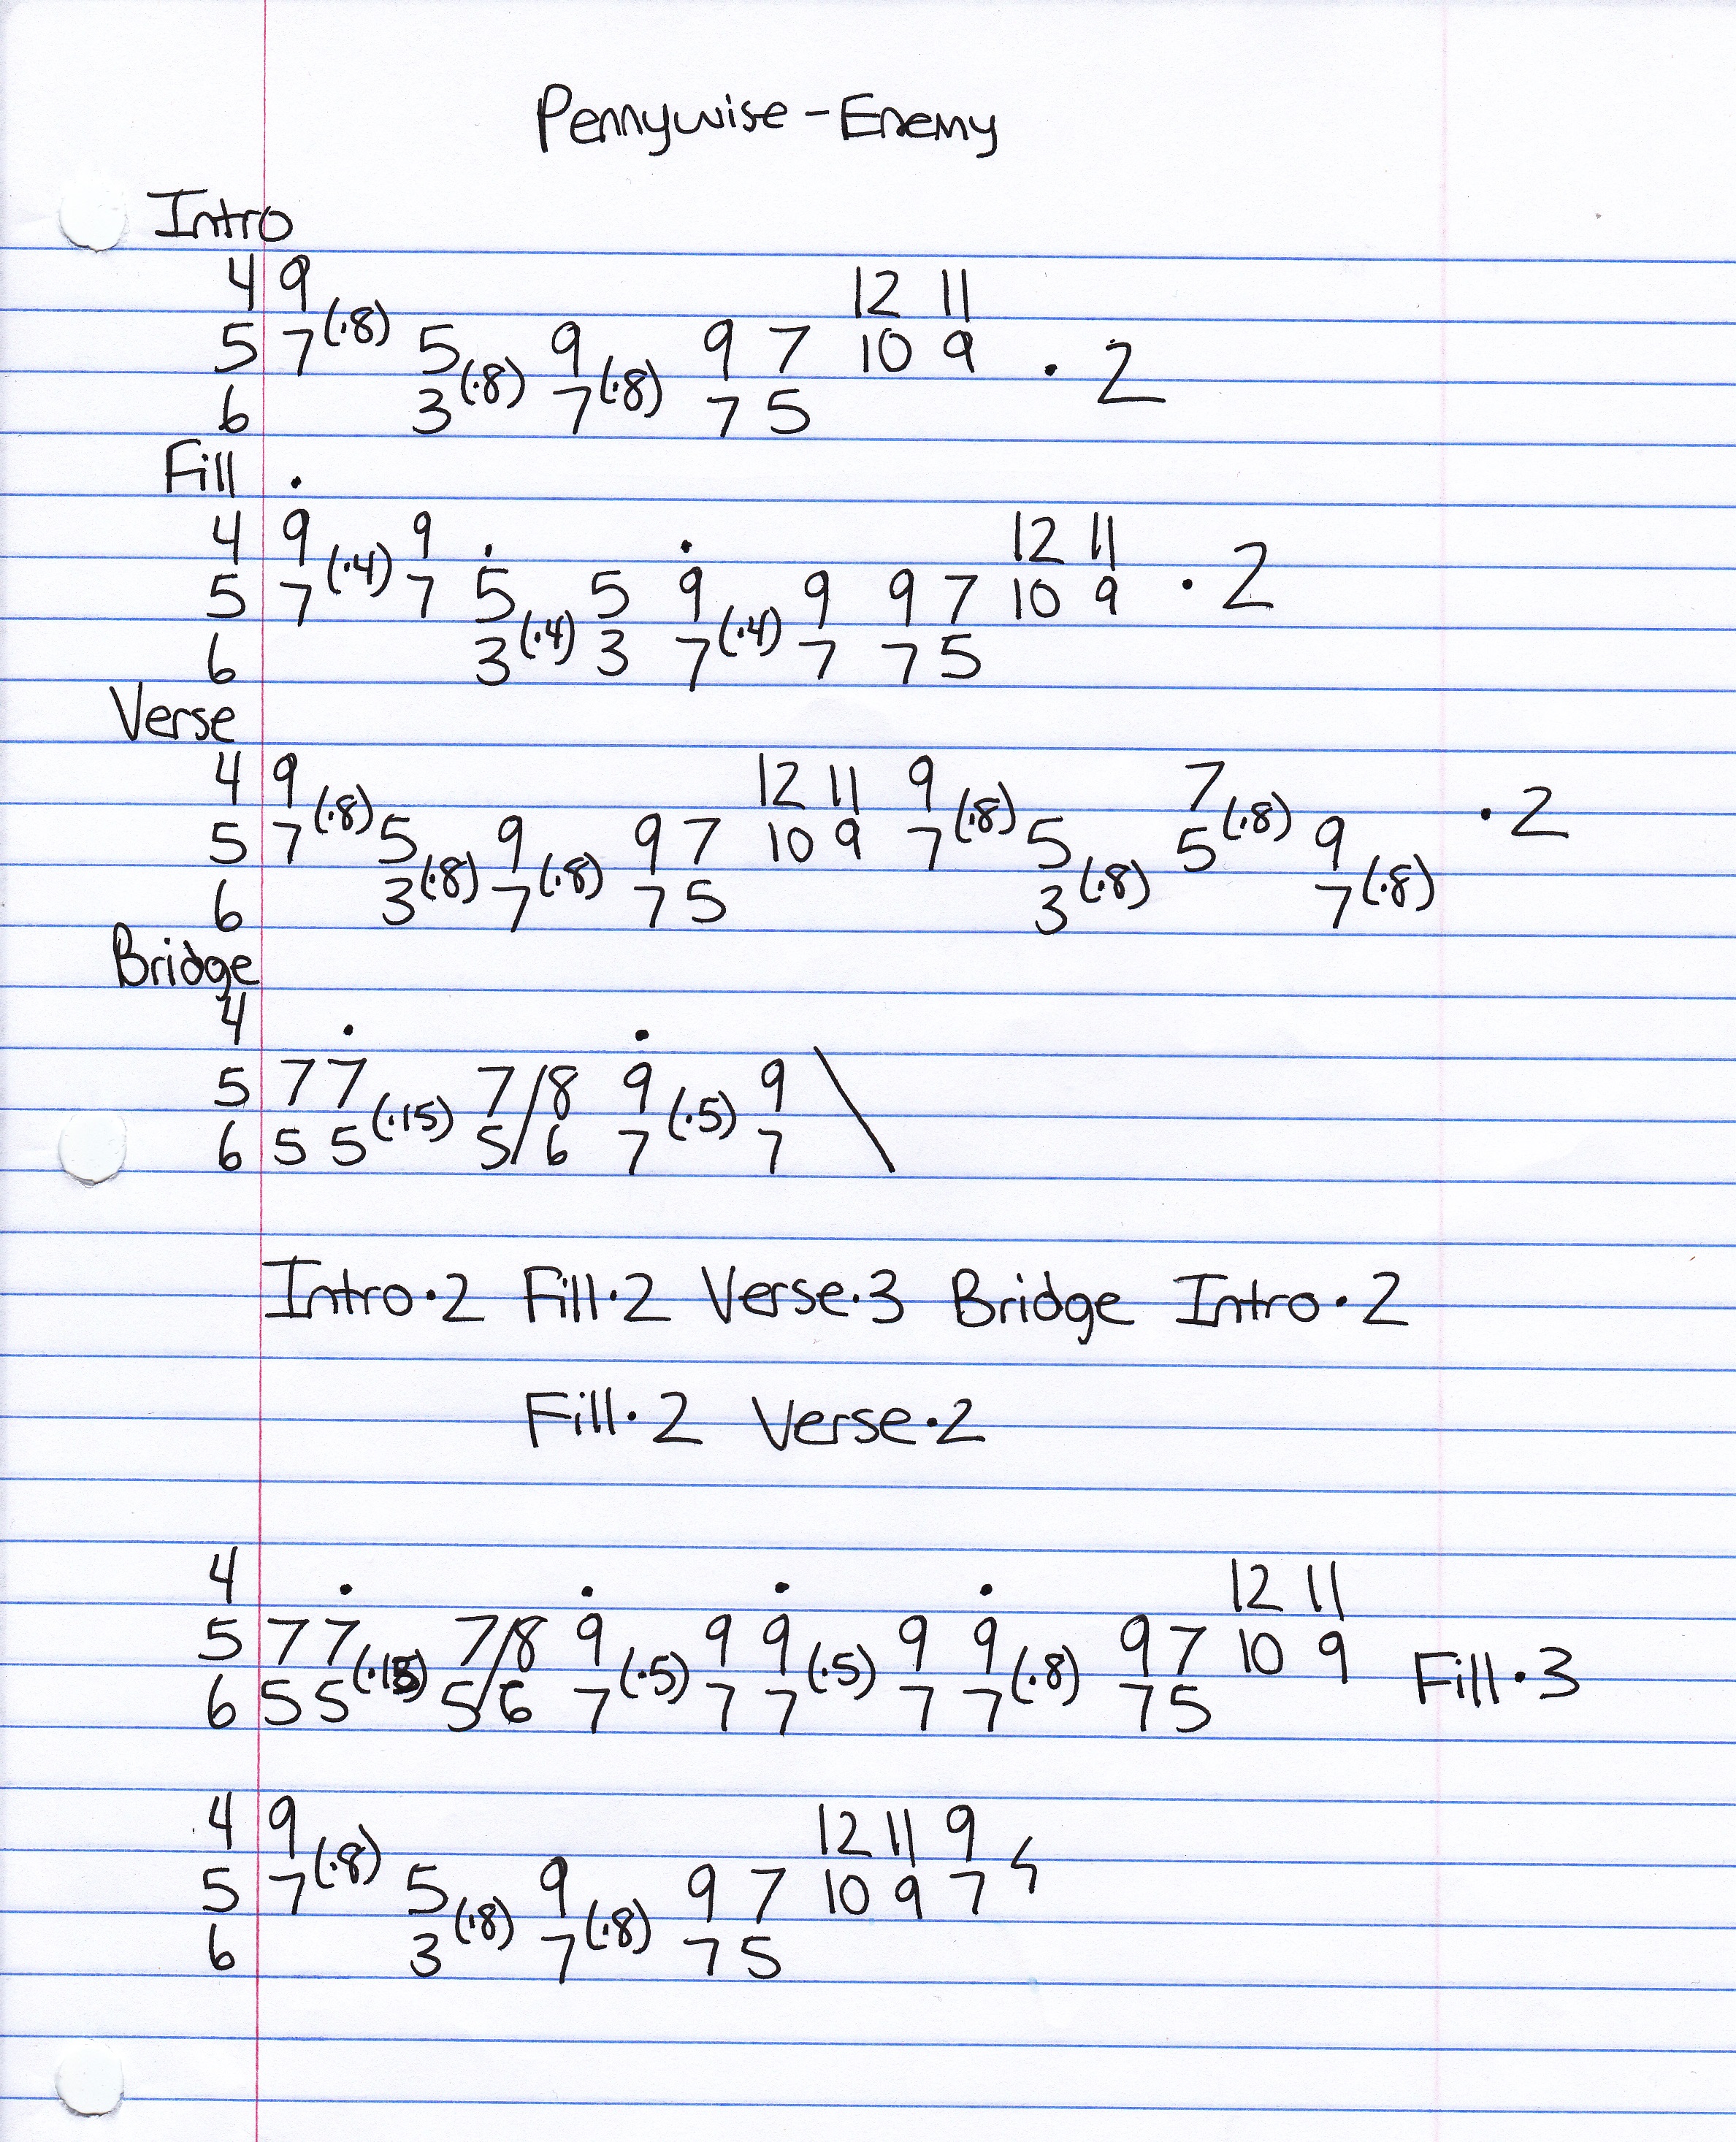 Pennywise - Enemy
Intro
4 9 12 11
5 7 (·8) 5 9 9 7 10 9 · 2
6 3 (·8) 7 (·8) 7 5
Fill ·
4 9 9 · · 12 11
5 7 (·4) 7 5 5 9 9 9 7 10 9 · 2
6 3 (·4) 3 7 (·4) 7 7 5
Verse
4 9 12 11 9 7
5 7 (·8) 5 9 9 7 10 9 7 (·8) 5 5 (·8) 9 · 2
6 3 (·8) 7 (·8) 7 5 3 (·8) 7 (·8)
Bridge
4 · ·
5 7 7 7 / 8 9 9 \
6 5 5 (·15) 5 / 6 7 (·5) 7
Intro · 2 Fill · 2 Verse · 3 Bridge Intro · 2
Fill · 2 Verse · 2
4 · · · · 12 11
5 7 7 7 / 8 9 9 9 9 9 9 7 10 9 Fill · 3
6 5 5 5 / 6 7 (·5) 7 7 (·5) 7 7 (·8) 7 5
4 9 12 11 9
5 7 (·8) 5 9 9 7 10 9 7
6 3 (·8) 7 (·8) 7 5